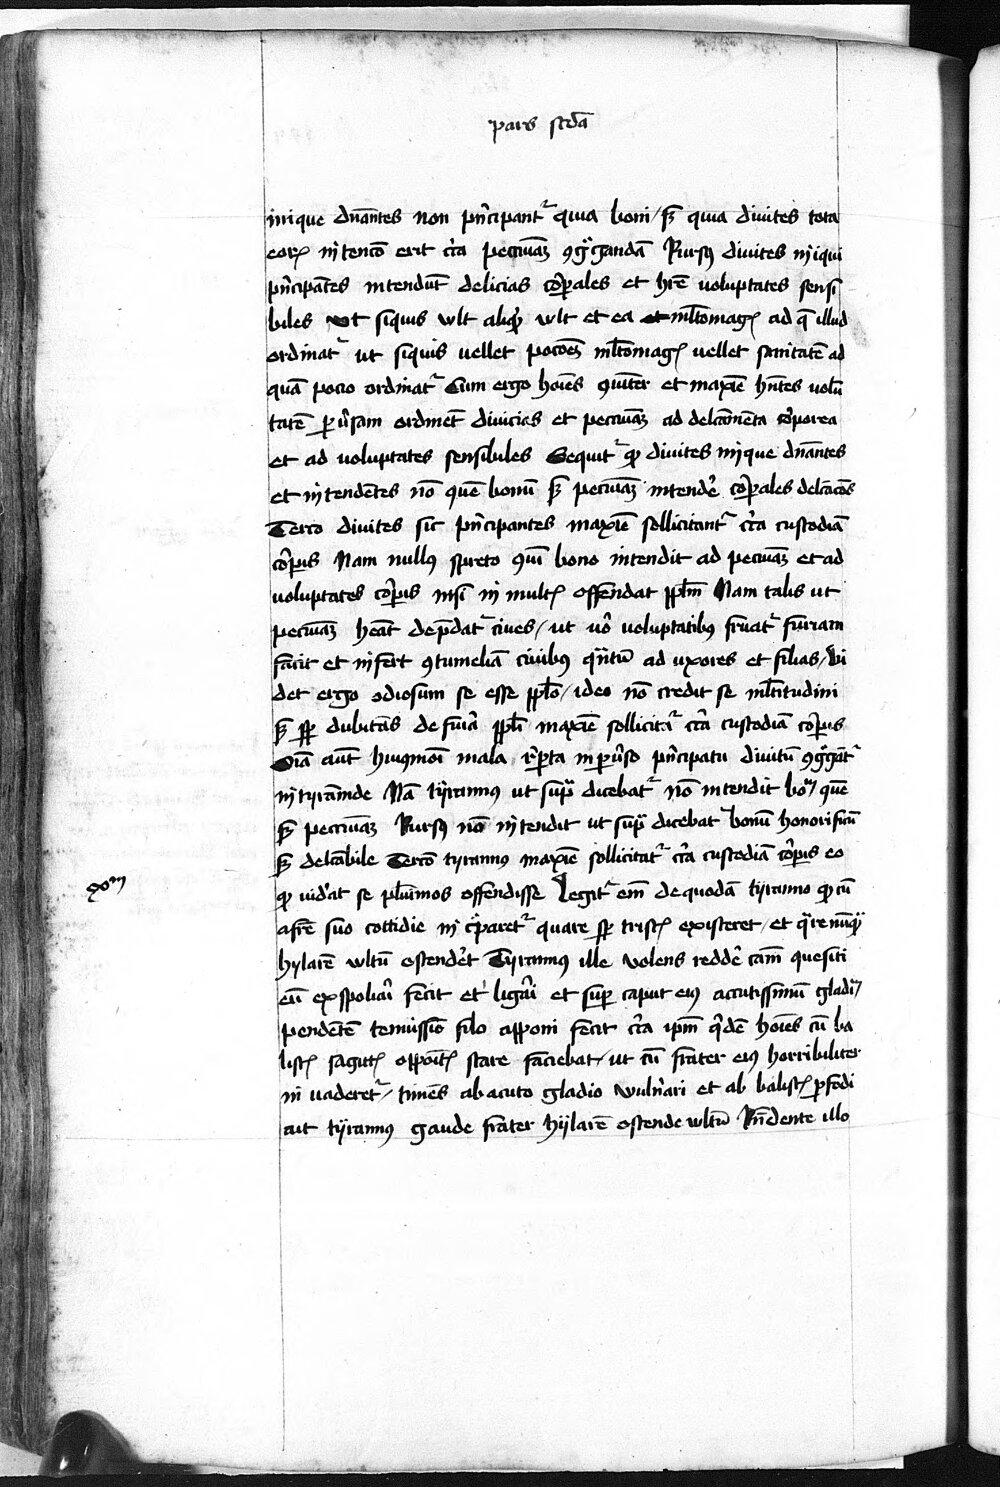 pars scda
inique dnantes non pncipantr quia boni / sz quia diuites tota
eorz intenco erit cira pecuniaz gggandā Rursus diuites iniqui
pncipantes intendunt delicias corporales et hre uoluptates sensi
biles Ut siquis wlt aliquid wlt et ea et mltomagz ad q illud
ordinatr ut siquis uellet pocoes mltomagz uellet sanitatē ad
quā pocio ordinatr Cum ergo hoies quiter et maxie hntes uolu
tatē puersam ordinet diuicias et pecuniaz ad delcamenta corporea
et ad uoluptates sensibiles Sequitr qd diuites inique dnantes
et intendētes nō quē bonū sz pecuniaz intendē corporales delcacoes
Tercio diuites sic pncipantes maxie sollicitantr cira custodiā
corpis Nam nullus spreto qui bono intendit ad pecuniaz et ad
uoluptates corpis nisi in multz offendat pplm Nam talis ut
pecuniaz heat depdatr ciues / ut uo uoluptatibus fruatr furiam
facit et infert gtumeliā ciuibus qntū ad uxores et filias / Vi
det ergo odiosum se esse pplo / ideo nō credit se mltitudini
sz sp dubitās de furia ppli maxie sollicitatr cira custodiā corpis
Oia aut huiusmoi mala rpta in puerso pncipatu diuitū gggatr
in tyrannide Nā tyrannus ut supra dicebatr nō intendit bonum quē
sz pecuniaz Rursus nō intendit ut supra dicebat bonū honorificū
sz delcabile Tercio tyrannus maxie sollicitatr cira custodiā corpis eo
xom
qd uidēat se plurimos offendisse Legitr em de quodā tyranno qd cū
afre suo cottidie increparetr quare sp tristz existeret / et qre nunquam
hylarē wltū ostendēt Tyrannus ille volens reddē cam quesiti
eū exspoliari fecit et ligari et super caput eius accutissimū gladium
pendētē tenuissio filo apponi fecit cira ipm qdē hoies cū ba
listz sagittz oppoitz stare faciebat / ut cū frater eius horribiliter
inuaderetr / timēs ab acuto gladio wulnari et ab balistz pfodi
ait tyrannus gaude frater hylarē ostende wltū Rndente illo